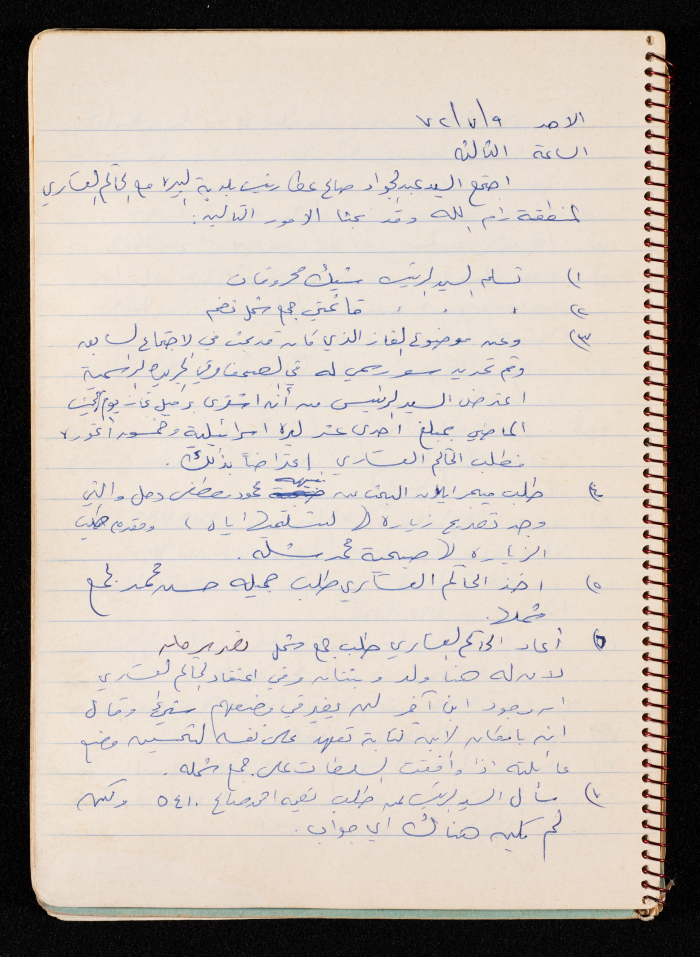 الاحد ٩/٧/٧٢
الساعة الثالثه
اجتمع السيد عبد الجواد صالح عطا رئيس بلدية البيره مع الحاكم العسكري
لمنطقة رام الله وقد بحثا الامور التالية:
١) تسلم السيد الرئيس شيك محروقات
٢) " " " قائمتي جمع شمل
٣) وعن موضوع الغاز الذي كان قد بحث في الاجتماع السابق
وتم تحديد سعر رسمي له في الصحف وفي الجريدة الرسمية
اعترض السيد الرئيس من أنه اشترى برميل غاز يوم
الماضي بمبلغ احدى عشر ليرة اسرائيلية وخمسه اغوره
فطلب الحاكم العسكري إعتراضاً بذلك.
٤) طلب ميجر البحث عن محمود مصطفى والتي
وجد تصريح زيارة ( اياه ) ومقدم طلب
الزيارة لـ صبحية محمد
٥) اخذ الحاكم العسكري طلب جميله حسن محمد لجمع
شملا.
٦) أعاد الحاكم العسكري طلب جمع شمل
لان له هنا ولد وبنتان وفي اعتقاد الحاكم العسكري
ان وجود ابن آخر لن يغير في وضعهم شيئا وقال
انه بامكان لابنه كتابة تعهد على نفسه لتحسين وضع
عائلته اذا وافقت السلطات على جمع شمله.
٧) سأل السيد الرئيس عن طلب احمد صالح ٥٤١٠ ولكن
لم يكن هناك اي جواب.